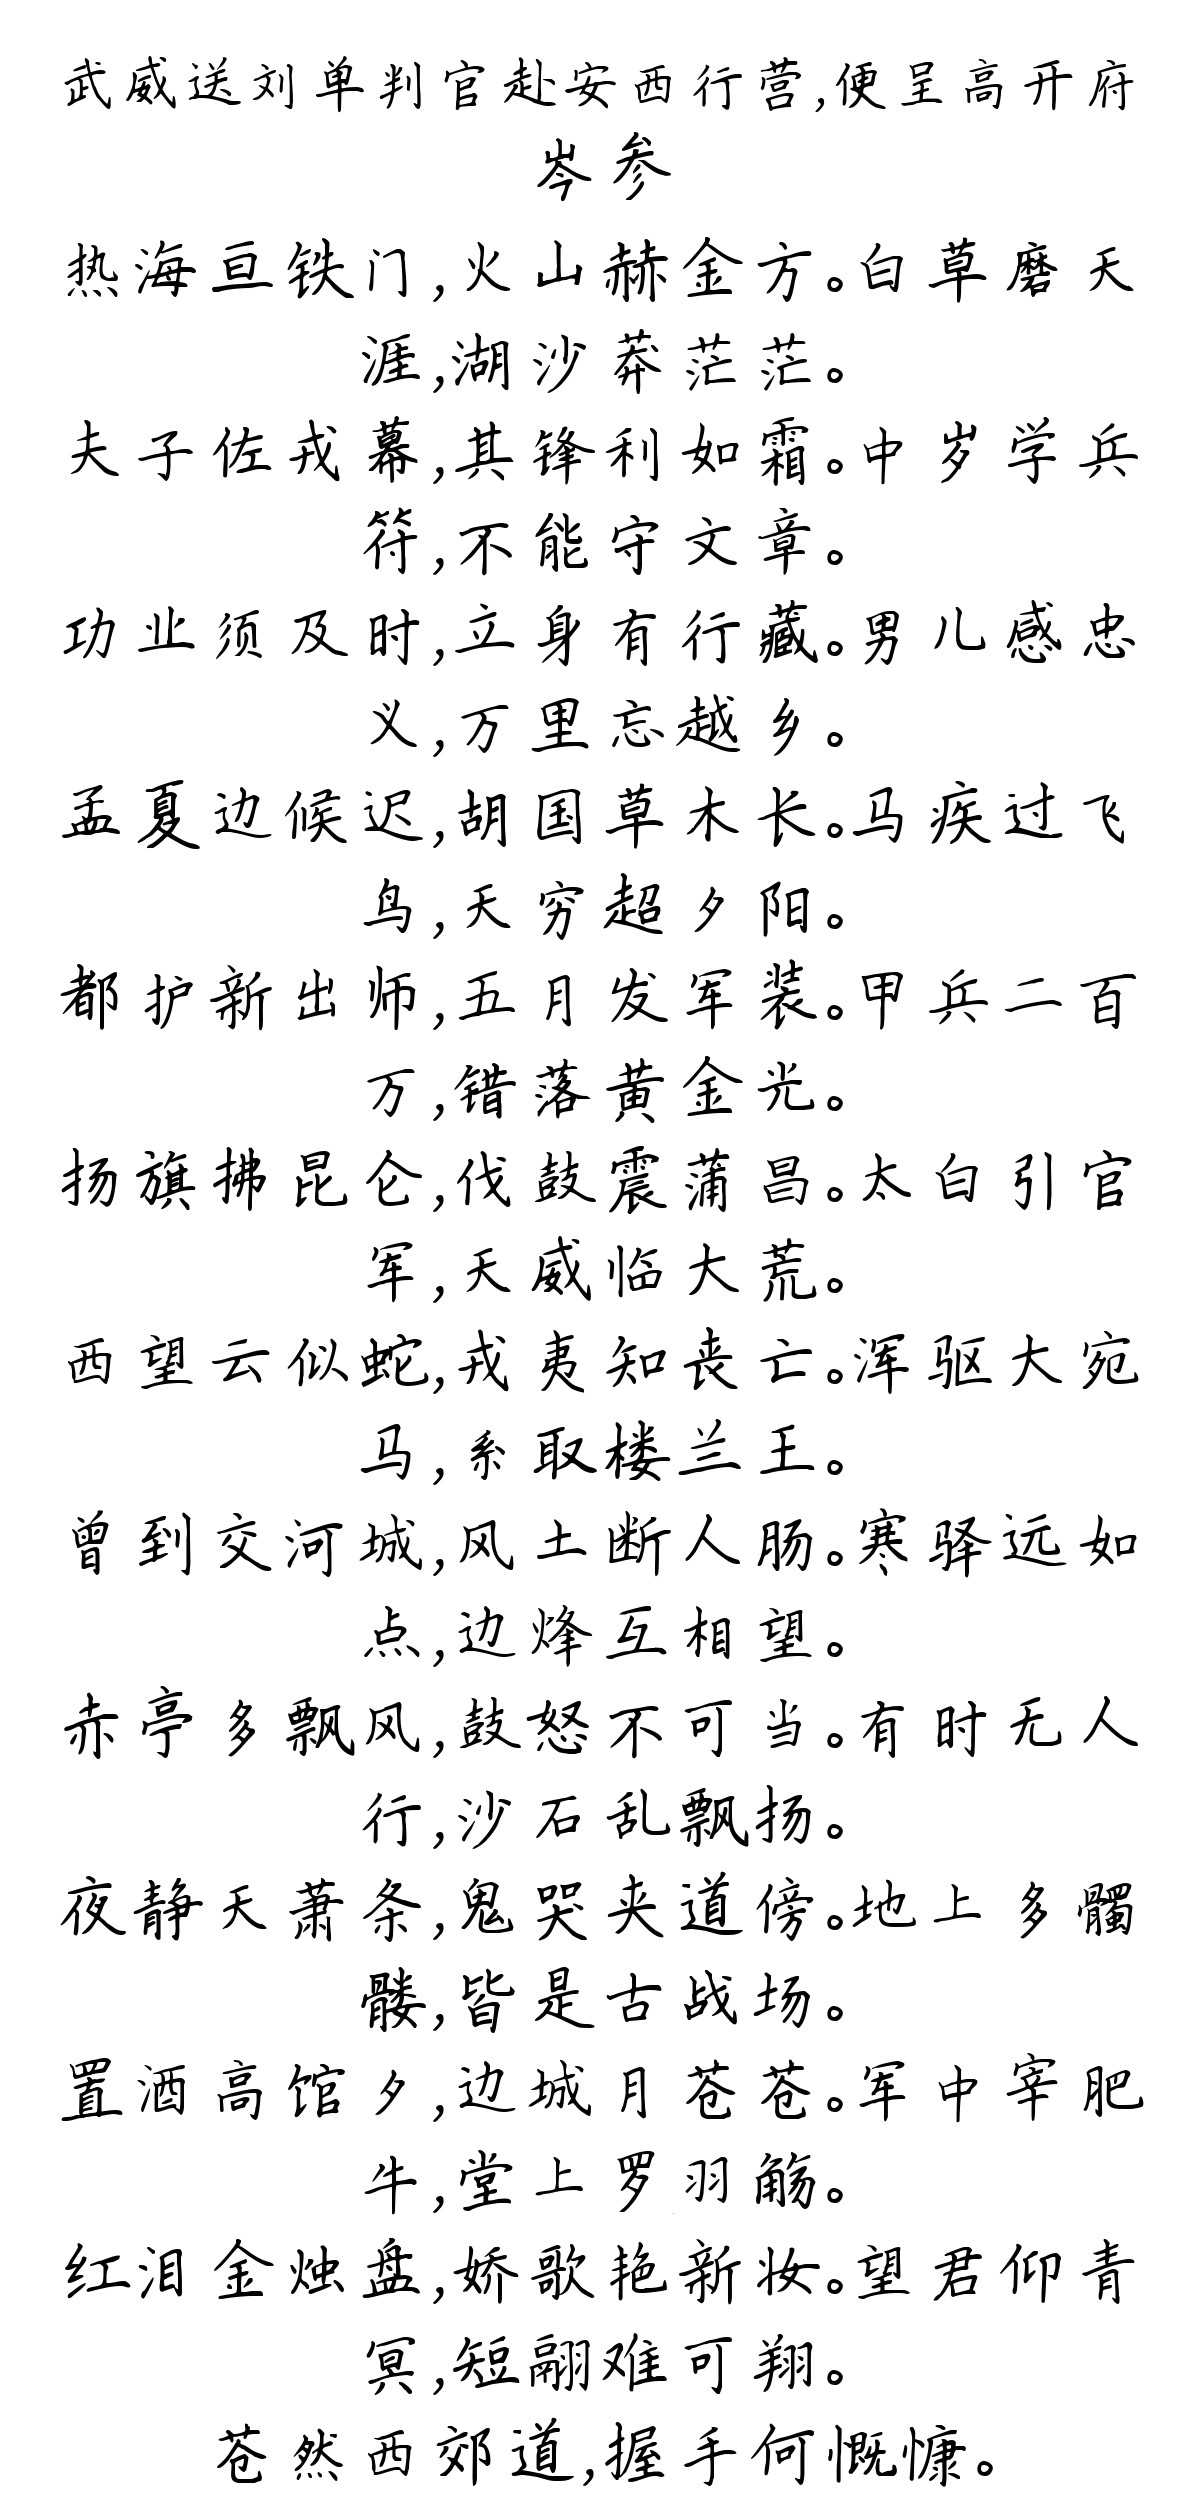 武威送刘单判官赴安西行营,便呈高开府
岑参
热海亘铁门,火山赫金方。白草磨天
涯,湖沙莽茫茫。
夫子佐戎幕,其锋利如霜。中岁学兵
符,不能守文章。
功业须及时,立身有行藏。男儿感忠
义,万里忘越乡。
孟夏边候迟,胡国草木长。马疾过飞
鸟,天穷超夕阳。
都护新出师,五月发军装。甲兵二百
万,错落黄金光。
扬旗拂昆仑,伐鼓震蒲昌。太白引官
军,天威临大荒。
西望云似蛇,戎夷知丧亡。浑驱大宛
马,系取楼兰王。
曾到交河城,风土断人肠。寒驿远如
点,边烽互相望。
赤亭多飘风,鼓怒不可当。有时无人
行,沙石乱飘扬。
夜静天萧条,鬼哭夹道傍。地上多髑
髅,皆是古战场。
置酒高馆夕,边城月苍苍。军中宰肥
牛,堂上罗羽觞。
红泪金烛盘,娇歌艳新妆。望君仰青
冥,短翮难可翔。
苍然西郊道,握手何慨慷。